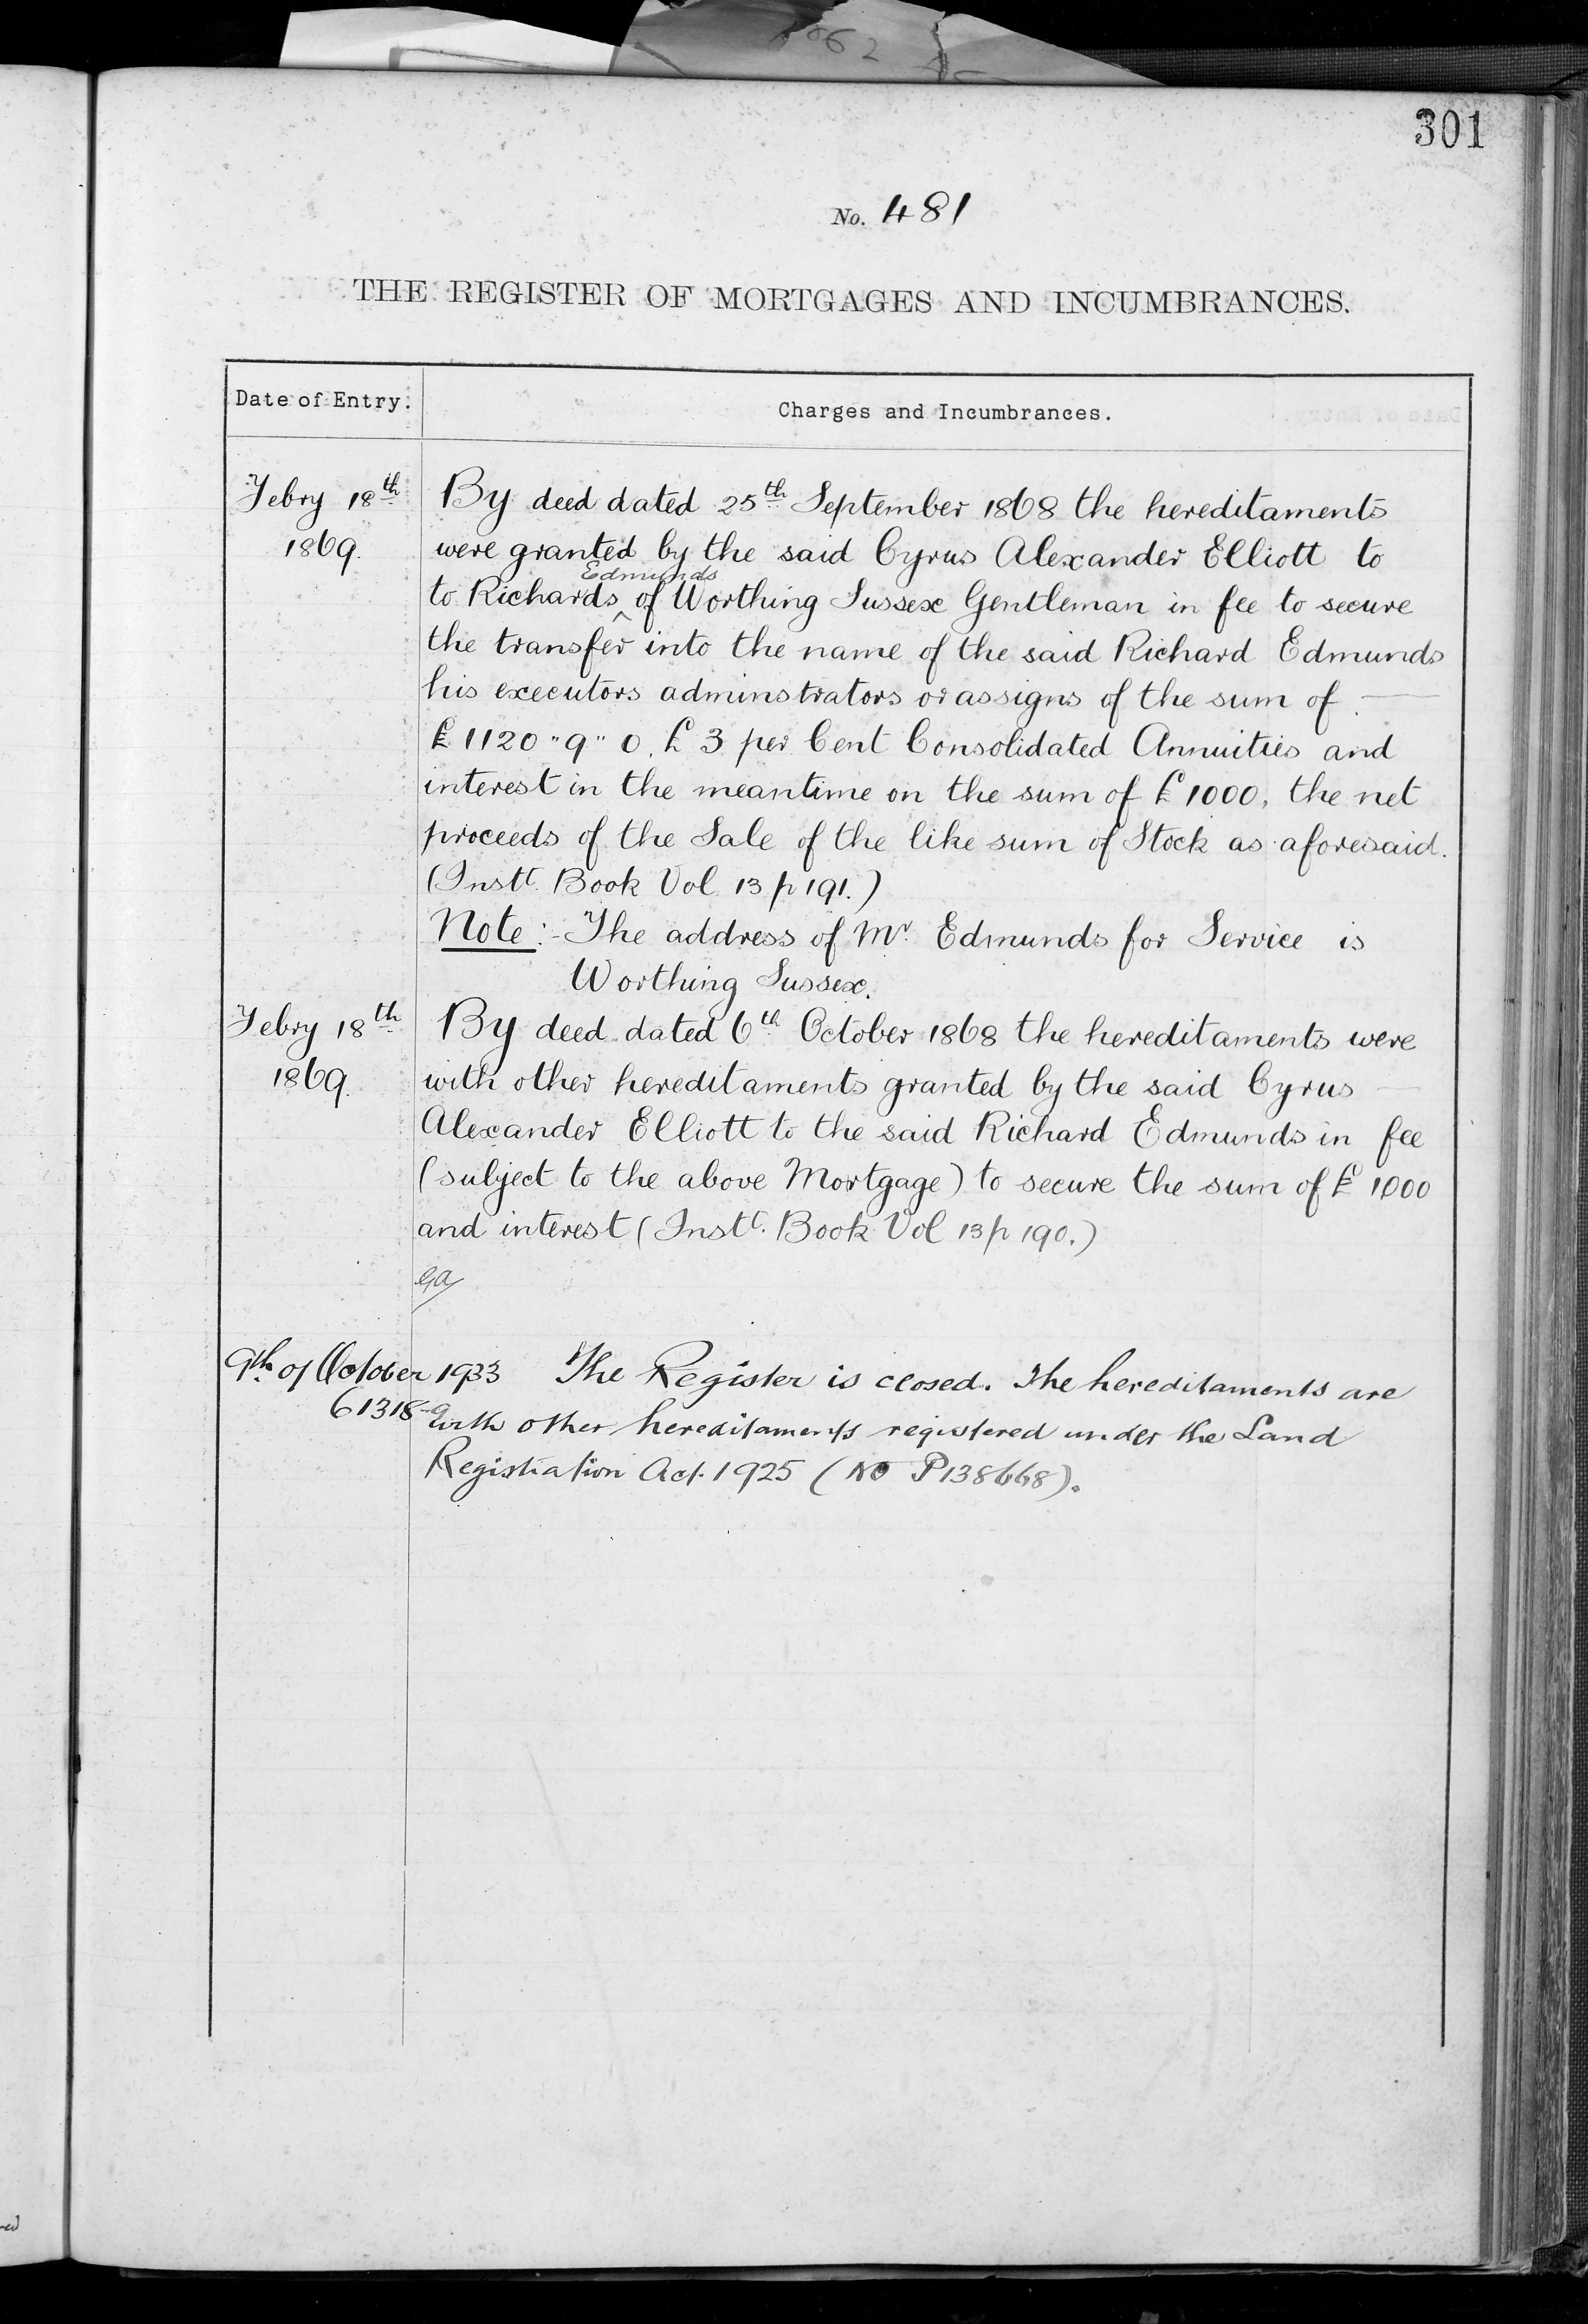 301
No. 481
THE REGISTER OF MORTGAGES AND INCUMBRANCES.
Date of Entry.
Charges and Incumbrances.
Febry 18th
1869.
By deed dated 25th September 1868 the hereditaments
were granted by the said Cyrus Alexander Elliott to
to Richards ^ Edmunds of Worthing Sussex Gentleman in fee to secure
the transfer into the name of the said Richard Edmunds
his executors adminstrators or assigns of the sum of
£1120 " 9 " 0. £3 per Cent Consolidated Annuities and
interest in the meantime on the sum of £1000, the net
proceeds of the Sale of the like sum of Stock as aforesaid.
(Instt. Book Vol 13 p 191.)
Note:- The address of Mr. Edmunds for Service is
Worthing Sussex.
Febry 18th
1869.
By deed dated 6th October 1868 the hereditaments were
with other hereditaments granted by the said Cyrus
Alexander Elliott to the said Richard Edmunds in fee
(subject to the above Mortgage) to secure the sum of £1000
and interest (Instt. Book Vol 13 p 190.)
9th of October 1933 The Register is closed. The hereditaments are
61318 with other hereditaments registered under the Land
Registration Act. 1925 (No P138668).